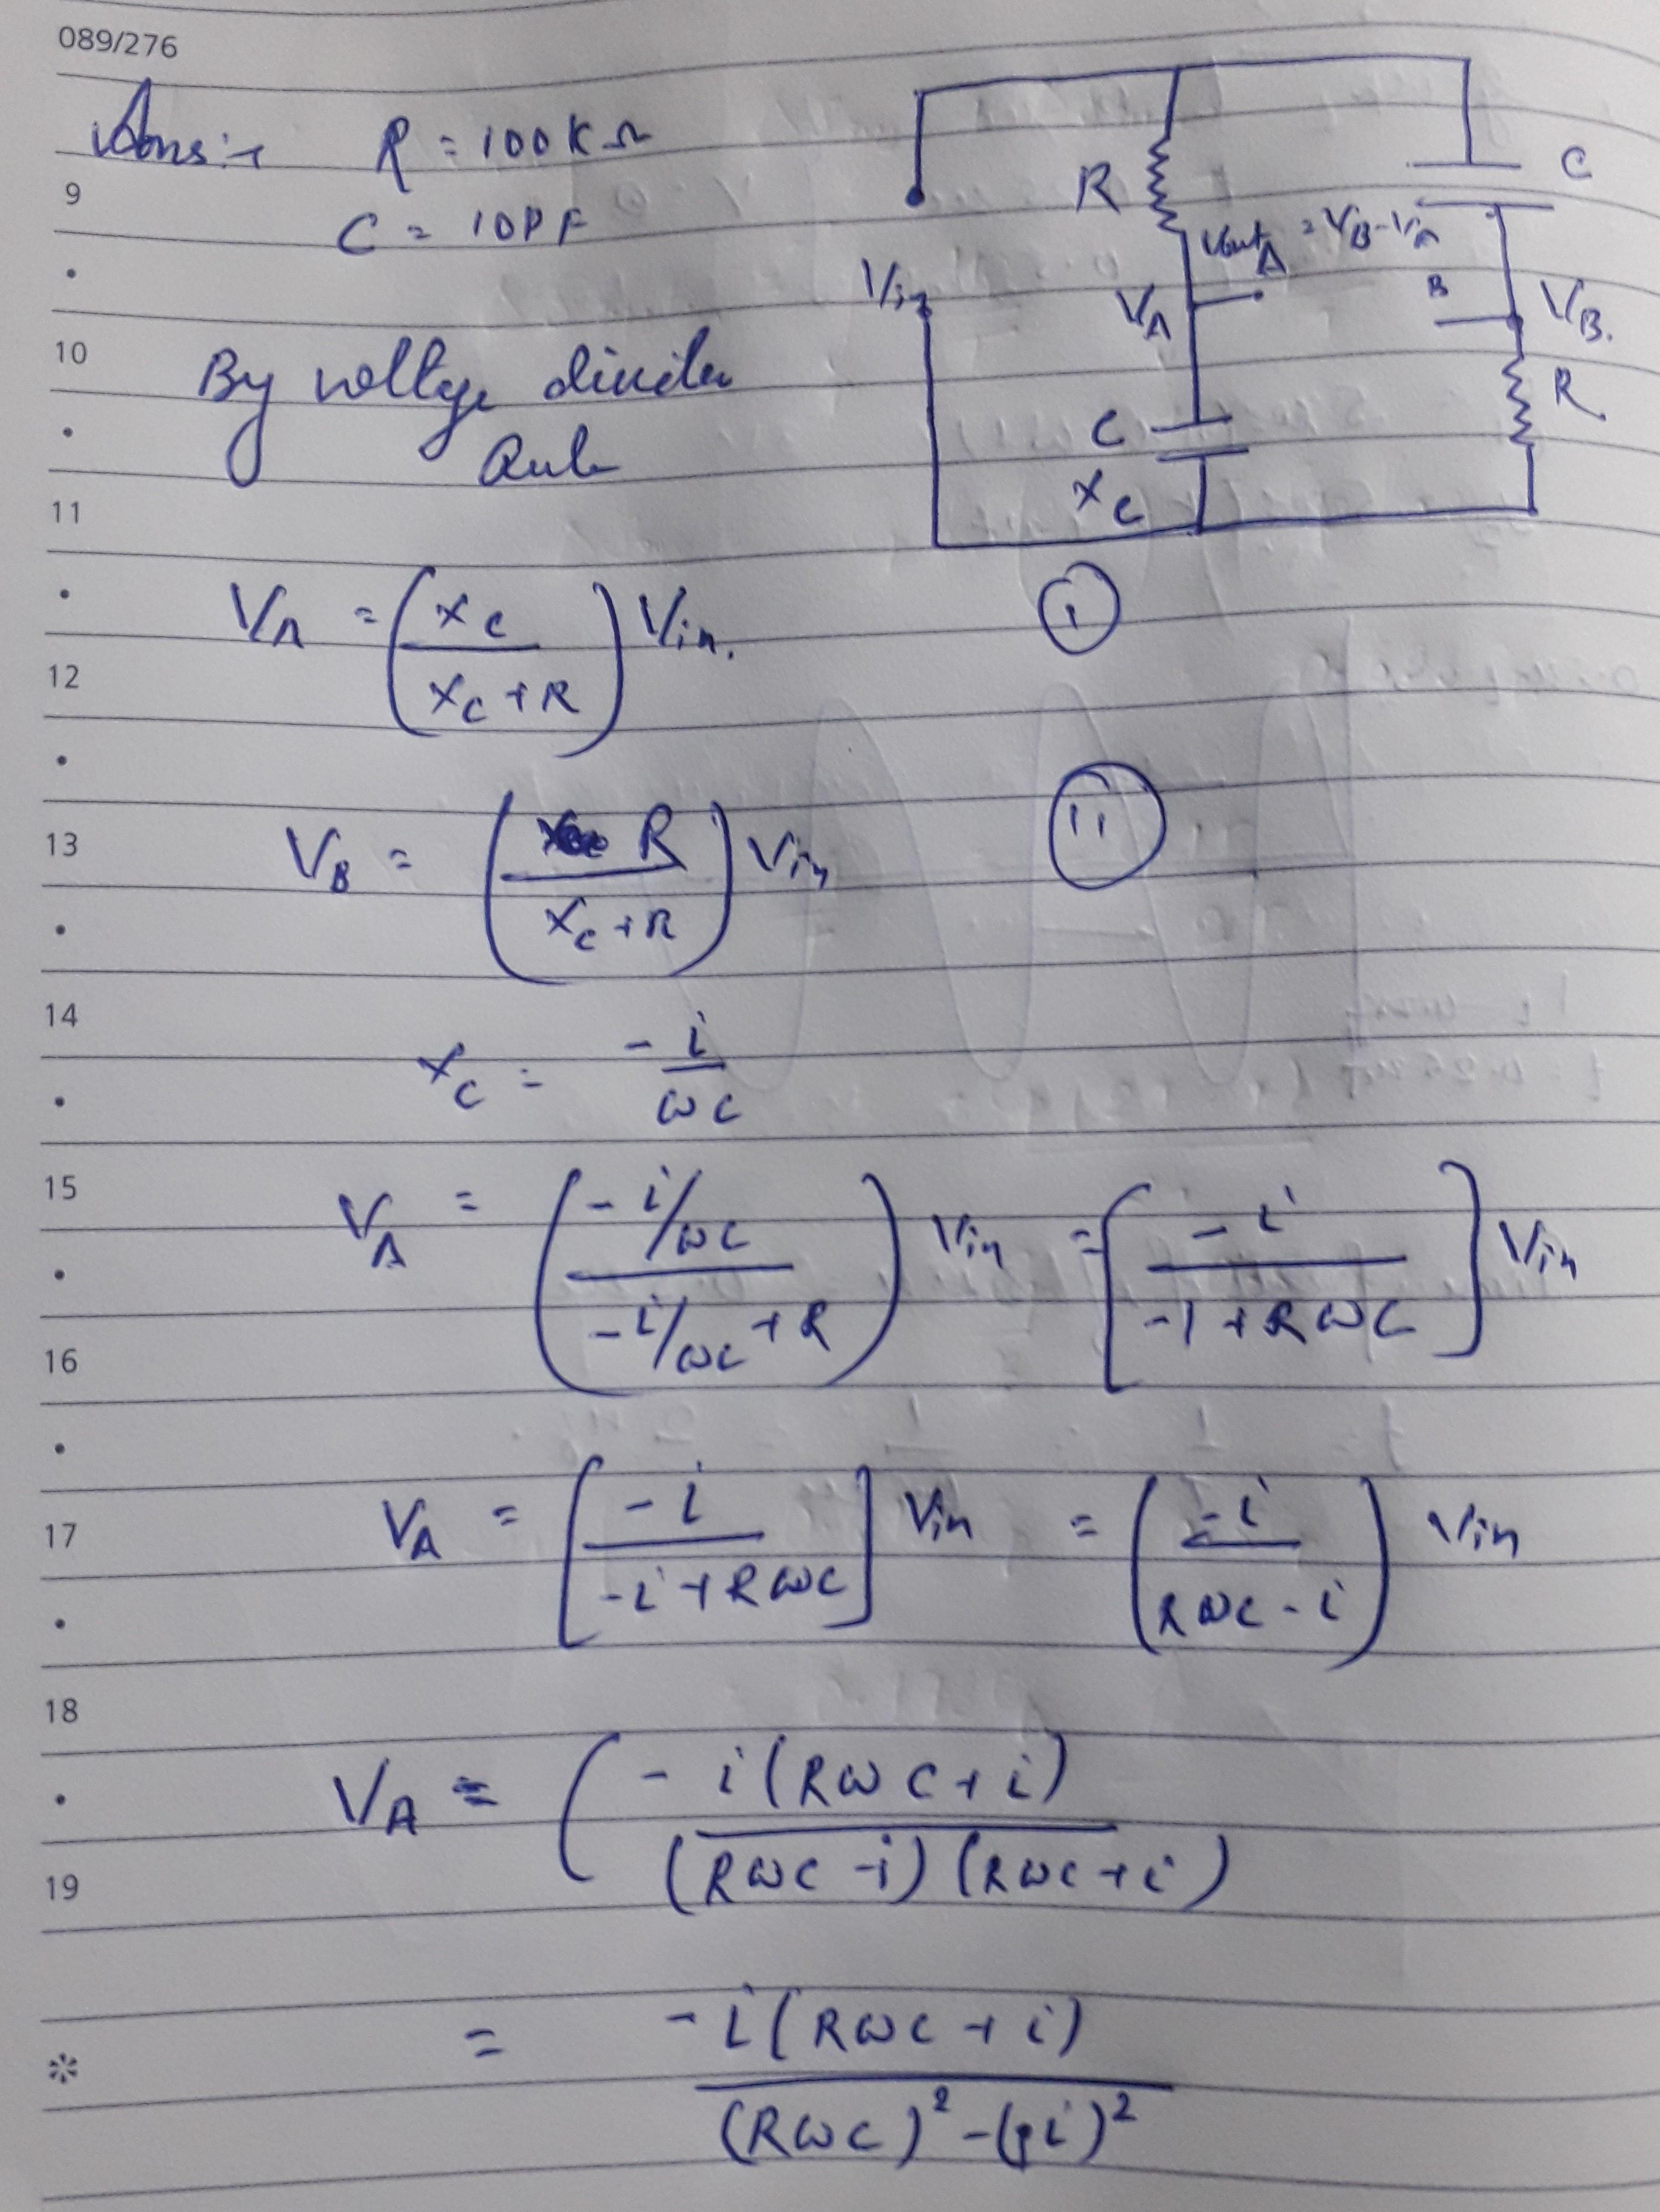 089/276
Ans:- R = 100KΩ
9
C = 10PF
10
By voltage divider
Rule
11
R
C
Vout = VB-VA
A
Vin
VA
B
VB.
R
C
Xc
VA = (Xc / Xc + R) Vin.
(i)
12
13
VB = (R / Xc + R) Vin
(ii)
14
Xc = -i / ωC
15
VA = (-i/ωC / -i/ωC + R) Vin = [-i / -1 + RωC] Vin
16
17
VA = [-i / -i + RωC] Vin = (-i / RωC - i) Vin
18
VA = (-i(RωC + i) / (RωC - i)(RωC + i)
19
= -i(RωC + i) / (RωC)² - (i)²
※